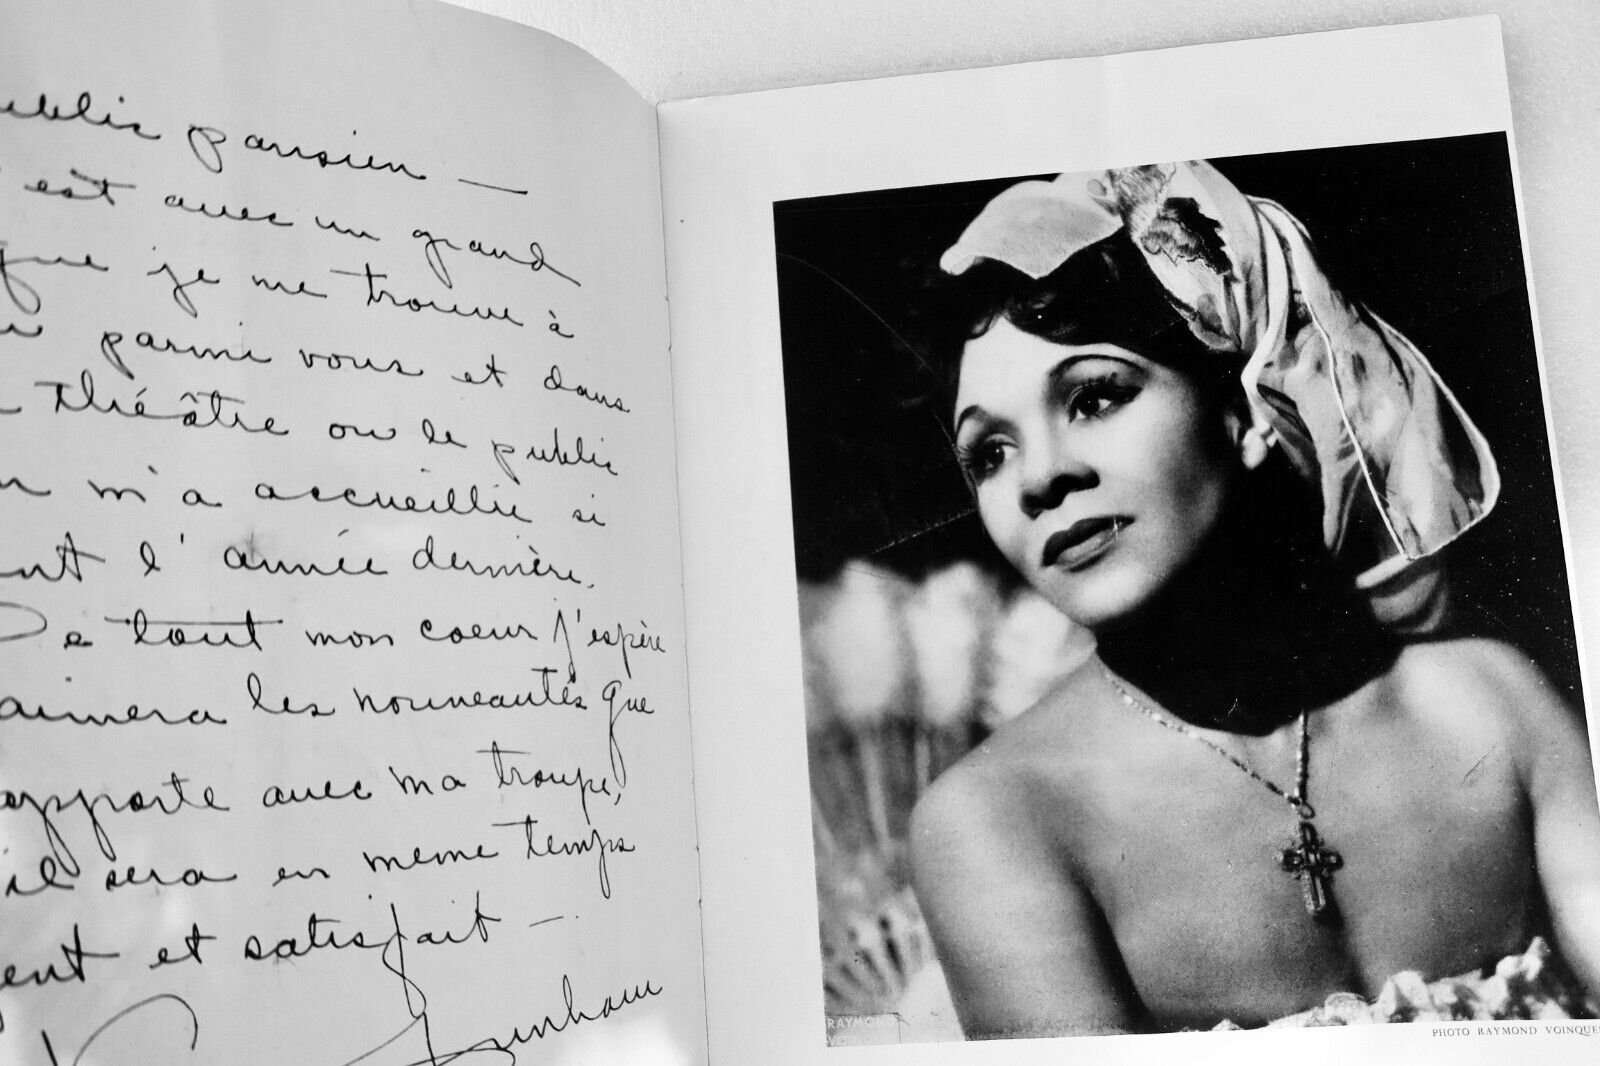 ublic parisien —
'est avec un grand
que je me trouve à
parmi vous et dans
théâtre ou le public
m'a accueillie si
ent l'année dernière.
De tout mon coeur j'espère
aimera les nouveautés que
apporte avec ma troupe,
'il sera en meme temps
gent et satisfait —
Dunham
RAYMOND
PHOTO RAYMOND VOINQUE